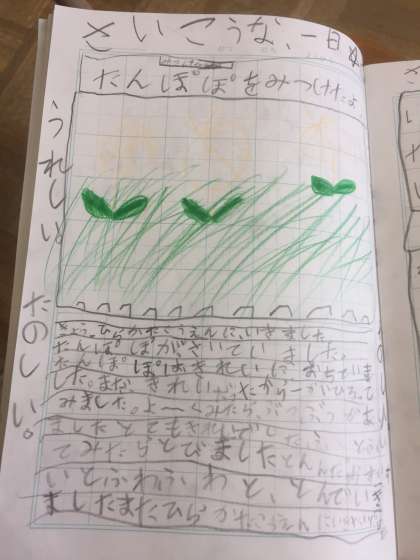 さいこうな、一日
たんぽぽをみつけたよ
うれしい
たのしい。
きょう、ひらかたこうえんに、いきました。
たんぽぽがさいていました。
たんぽぽはきれいにおちていま
した。まだきれいだったから一かひろって
みました。よーくみたら、ぶつぶつがあり
ましたとてもきれいでした
てみたらとびましたとんだ
いとふわふわと、とんでい
ましたまたひらかたこうえんにいきたい